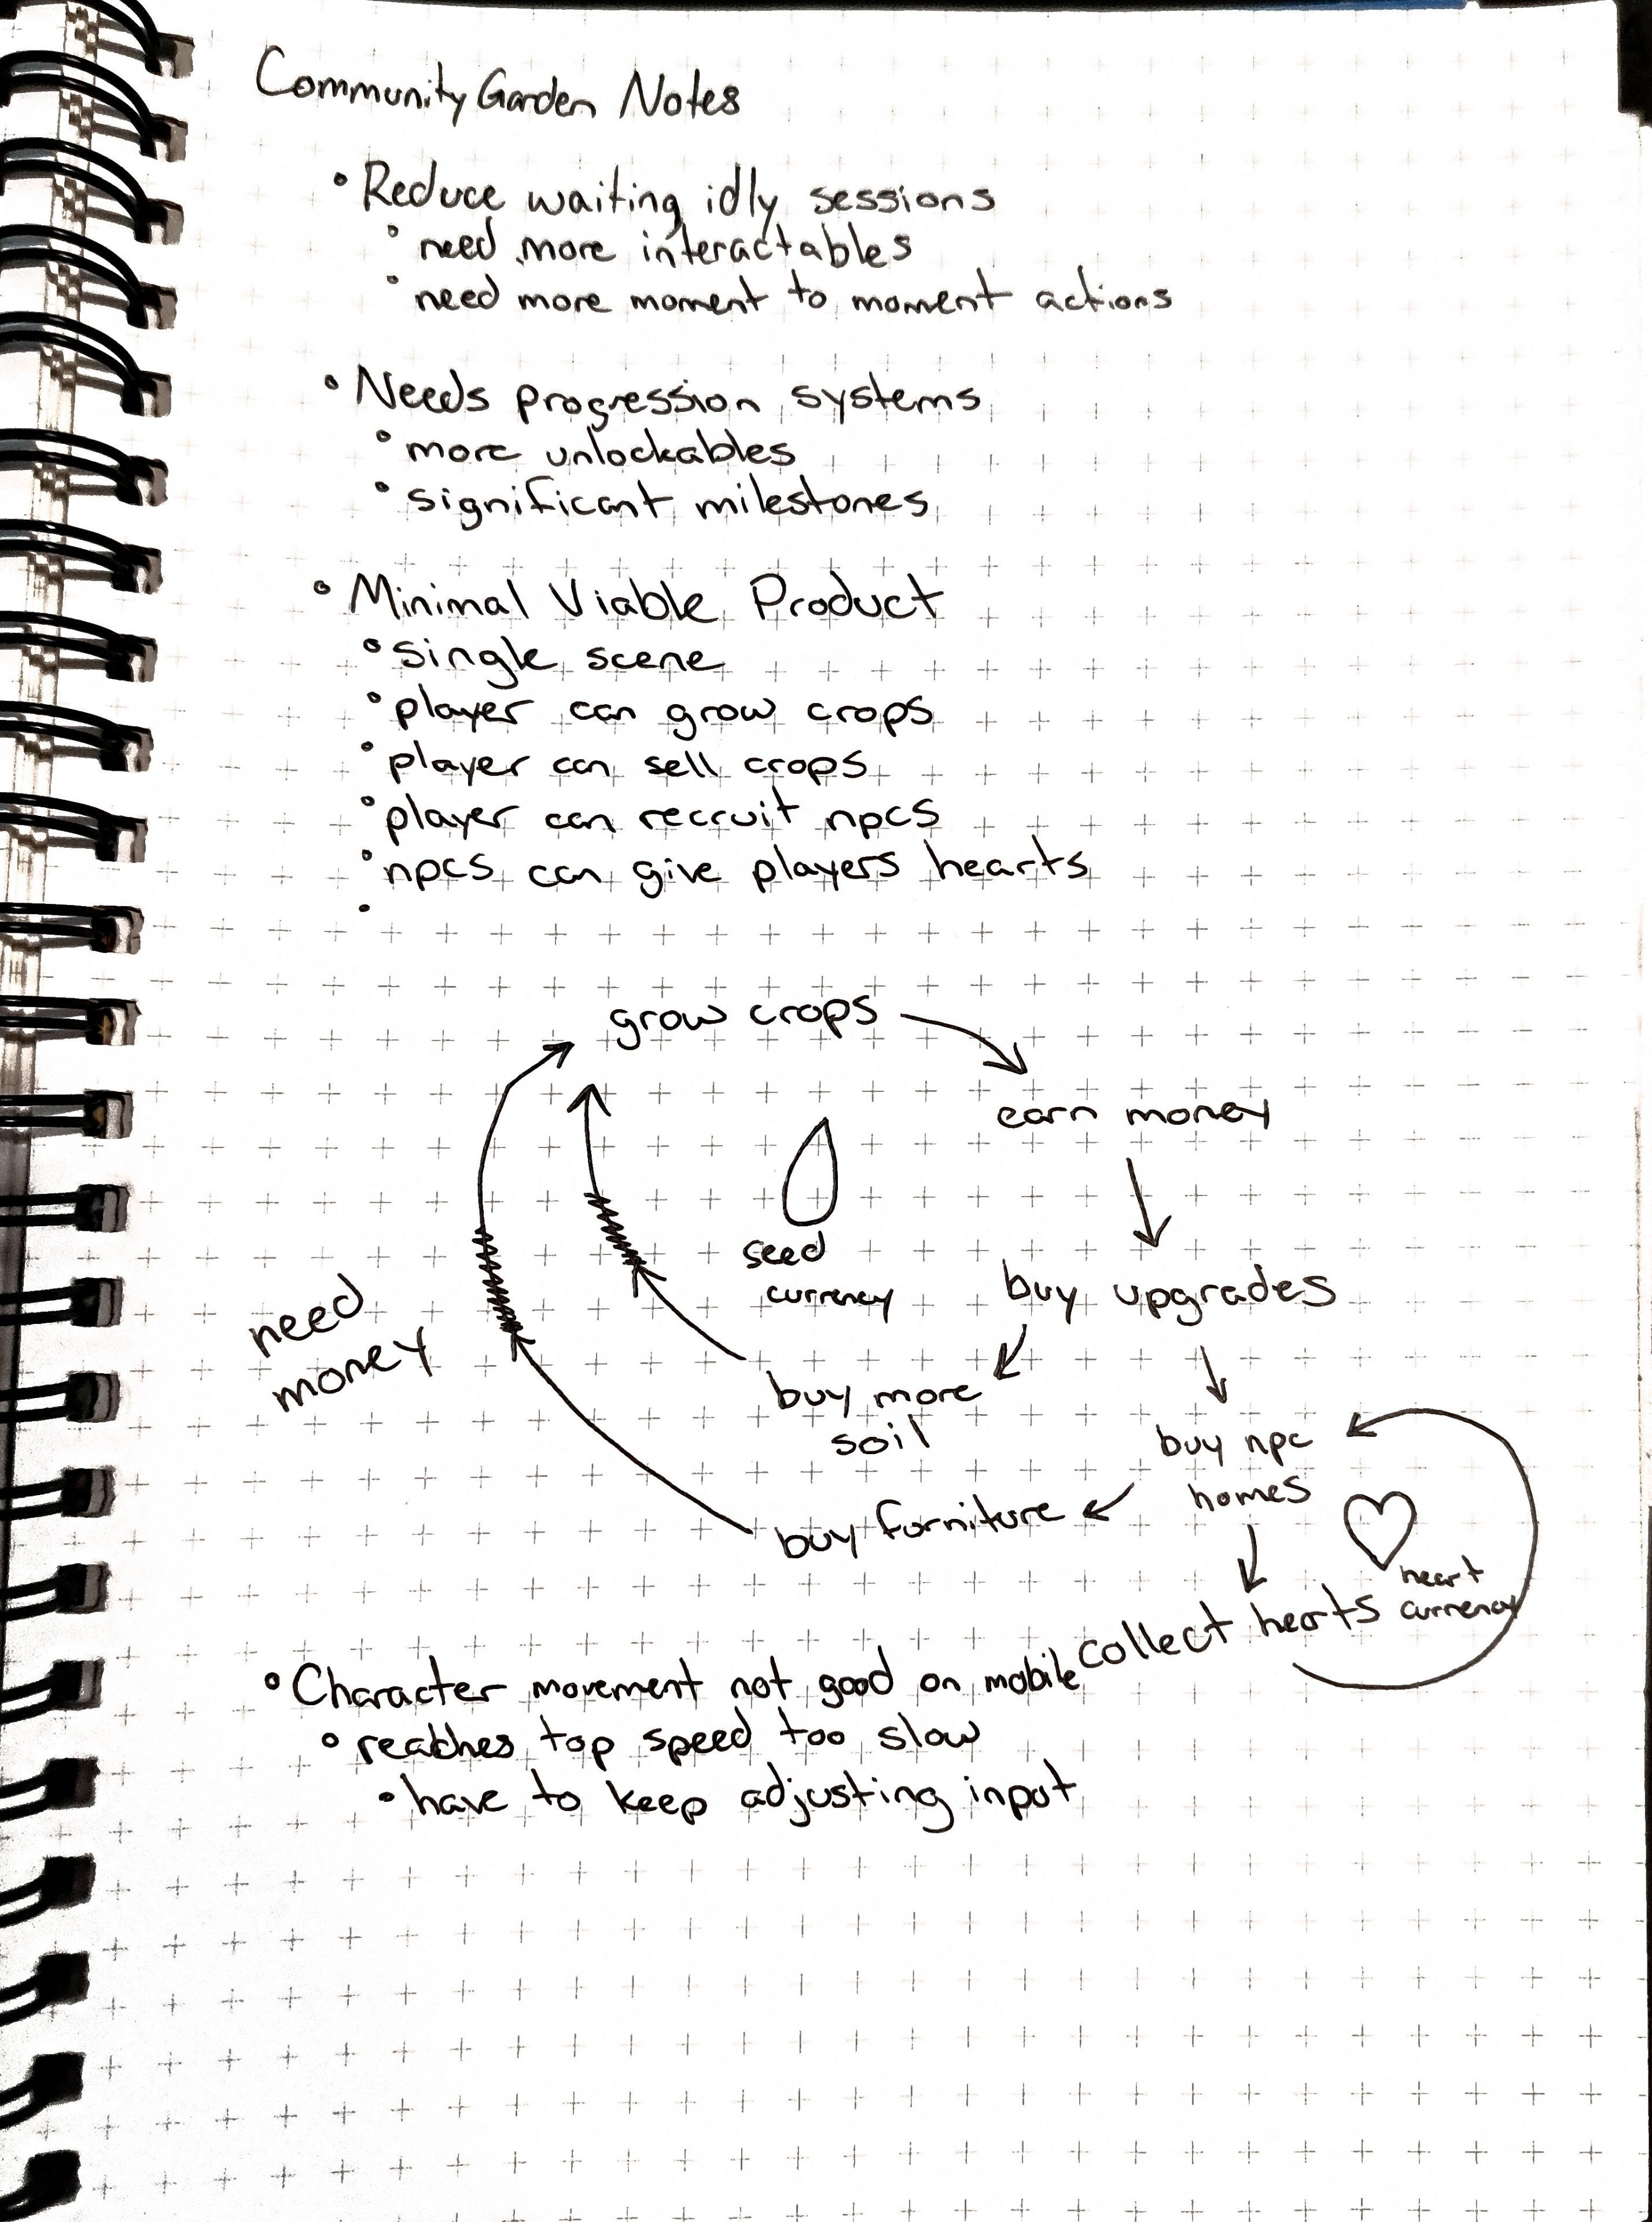 Community Garden Notes
• Reduce waiting idly sessions
• need more interactables
• need more moment to moment actions
• Needs progression systems
• more unlockables
• significant milestones
• Minimal Viable Product
• single scene
• player can grow crops
• player can sell crops
• player can recruit npcs
• npcs can give players hearts
•
grow crops
earn money
seed
currency
buy upgrades
need
money
buy more
soil
buy npc
homes
buy furniture
heart
currency
collect hearts
• Character movement not good on mobile
• reaches top speed too slow
• have to keep adjusting input